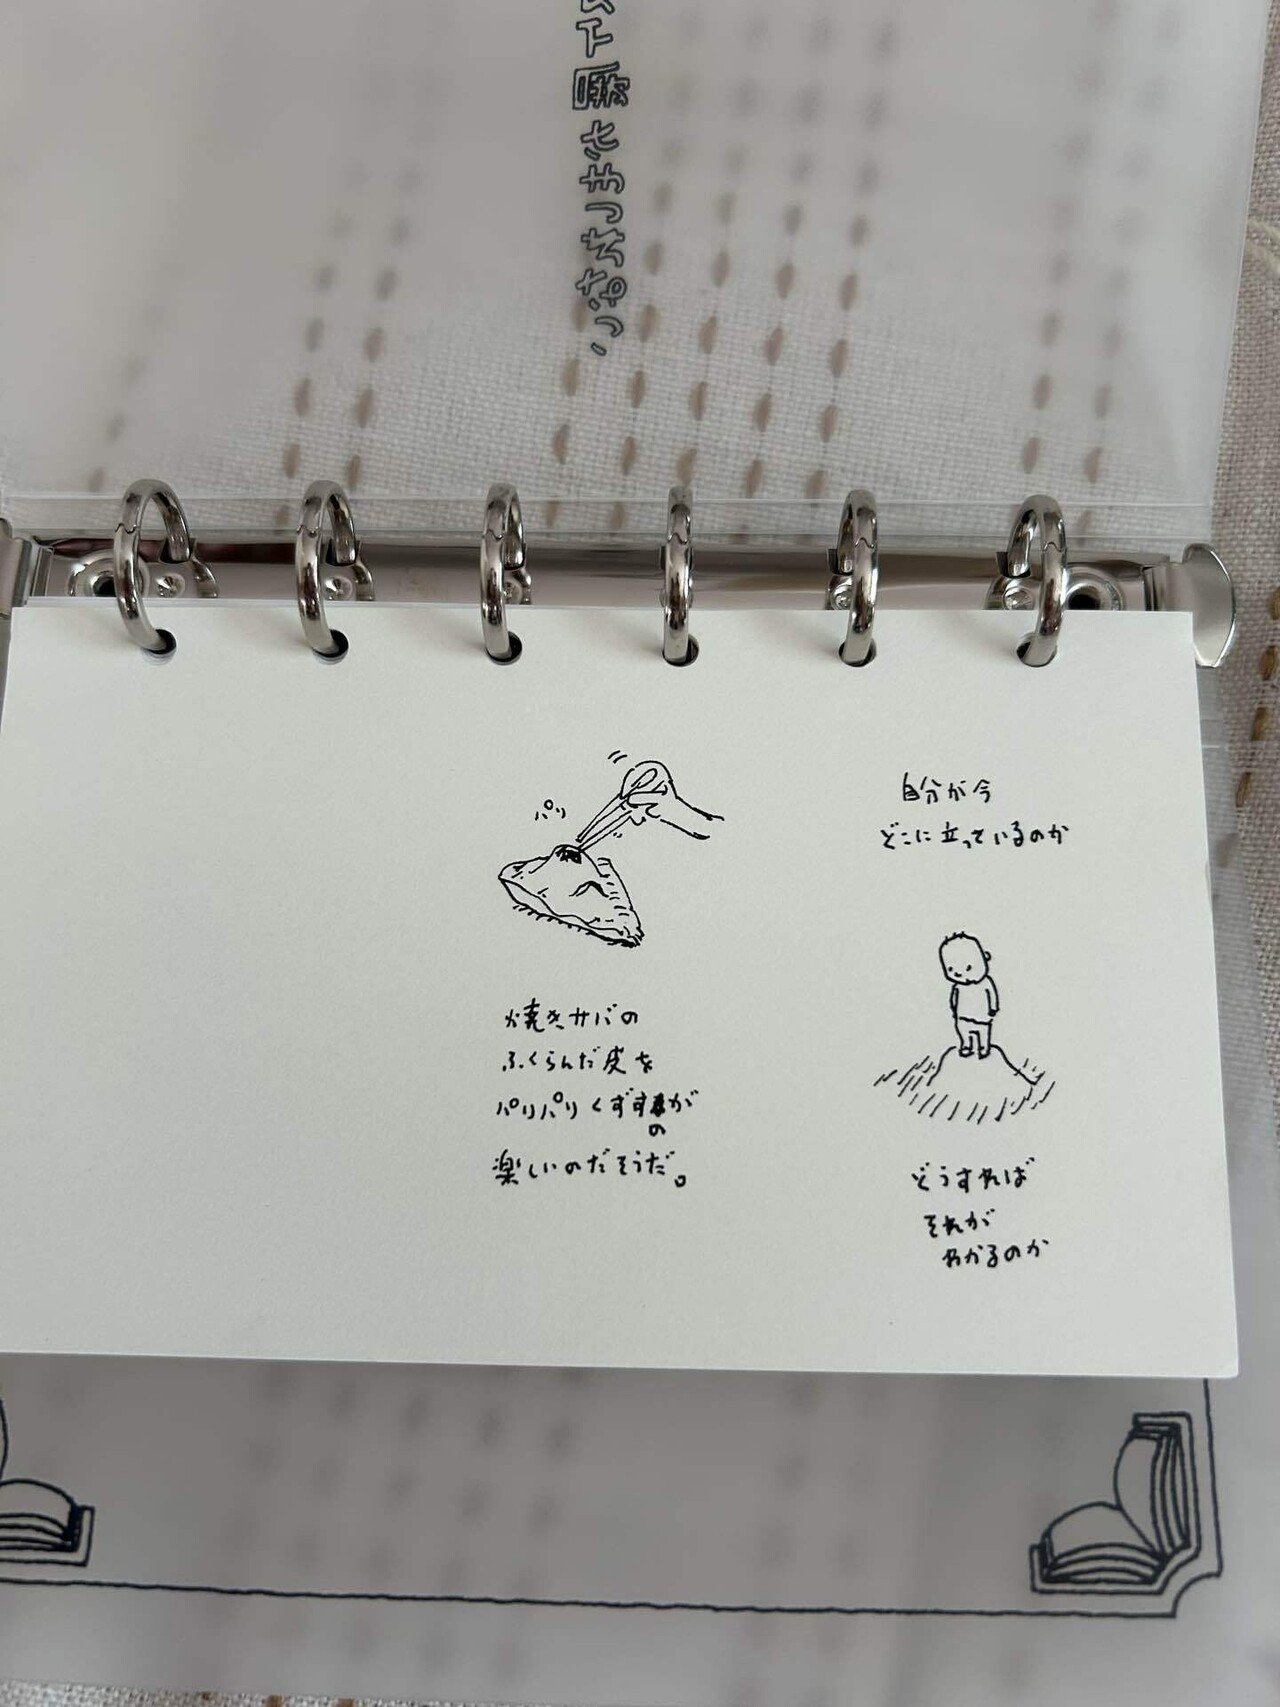 パリ
焼きサバの
ふくらんだ皮を
パリパリくずすが
の
楽しいのだそうだ。
自分が今
どこに立っているのか
どうすれば
それが
わかるのか